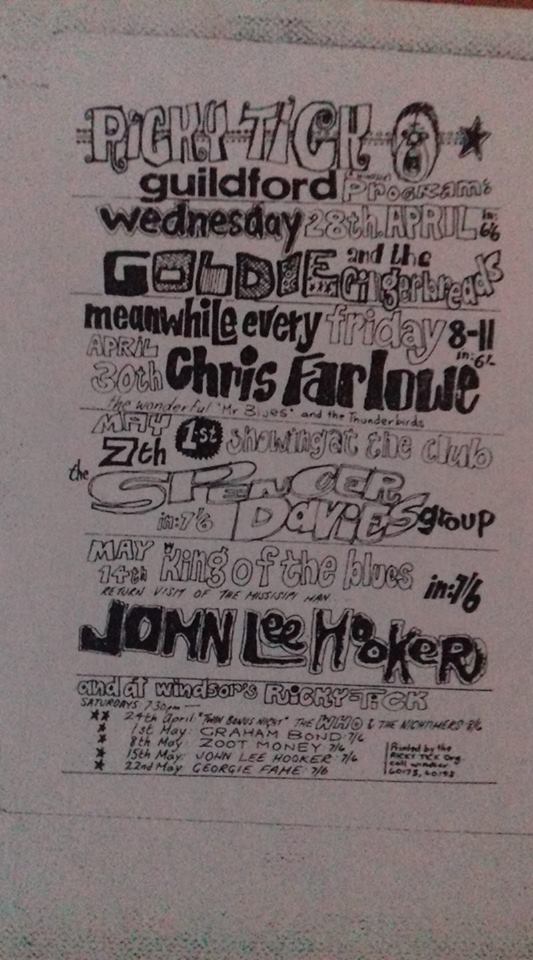 RICKY-TICK
guildford Program:
wednesday 28th APRIL in: 6/6
GOLDIE and the Gingerbreads
meanwhile every friday 8-11
APRIL 30th Chris Farlowe in: 6/-
the wonderful "Mr Blues" and the Thunderbirds
MAY 7th 1st showing at the club
the SPENCER DAVIES group
in: 7/6
MAY 14th King of the blues in: 7/6
RETURN VISIT OF THE MISSISIPI MAN...
JOHN Lee HOOKER
and at windsor's RICKY-TICK
SATURDAYS 7.30pm
24th April: "TWIN BONUS NIGHT" THE WHO & THE NIGHTIMERS 8/6
1st May: GRAHAM BOND 7/6
8th May: ZOOT MONEY 7/6
15th May: JOHN LEE HOOKER: 7/6
22nd May: GEORGIE FAME: 7/6
Printed by the
RICKY TICK Org
call windsor